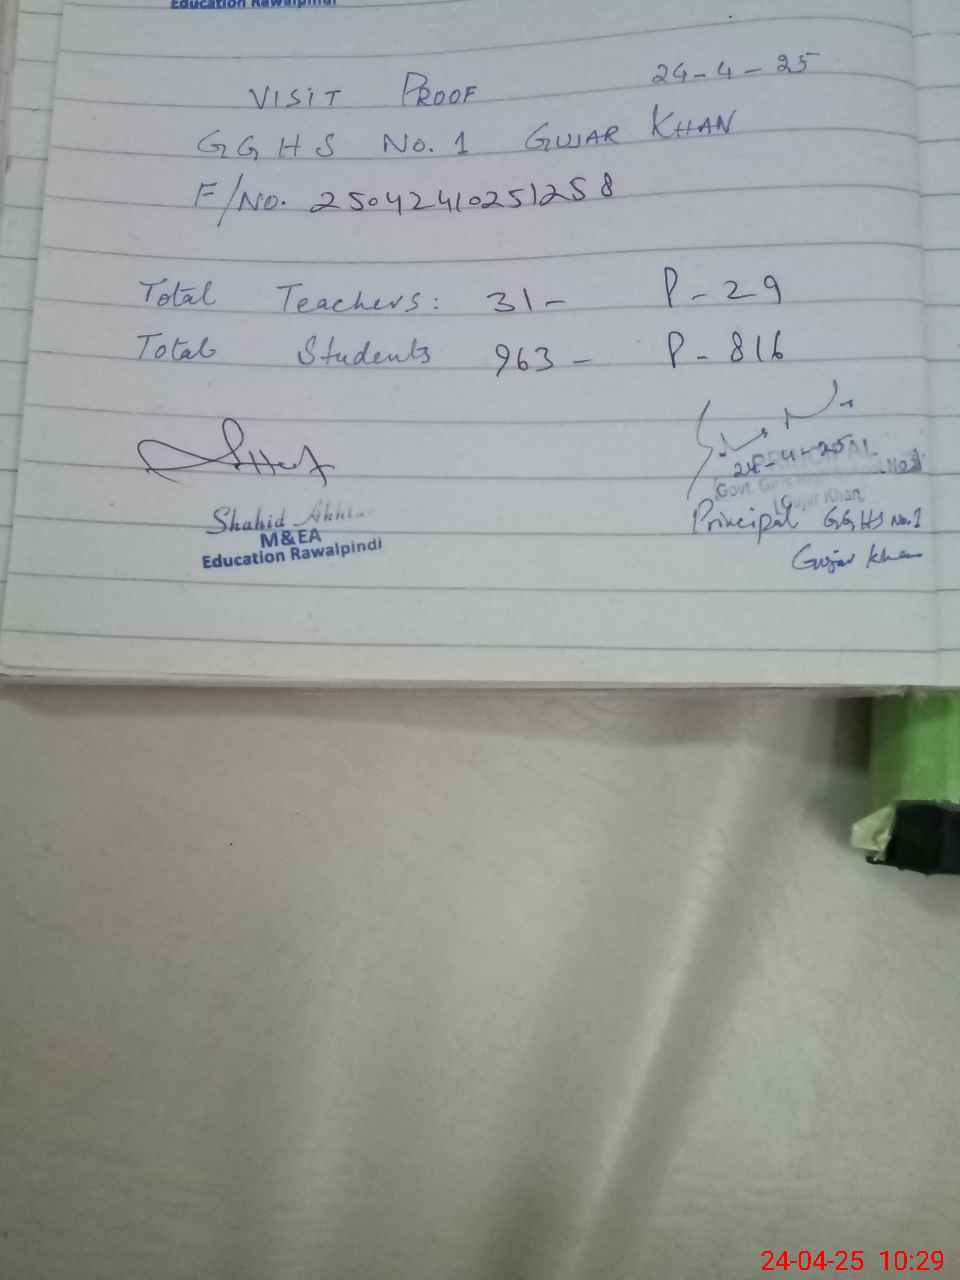 Education Rawalpindi
VISIT PROOF 24-4-25
GGHS No. 1 GUJAR KHAN
F/No. 25042410251258
Total Teachers: 31- P-29
Total Students 963- P-816
24-4-25
No.1
Govt. Girls
Gujar Khan
Shahid
M&EA
Education Rawalpindi
Principal GGHS No.1
Gujar Khan
24-04-25 10:29